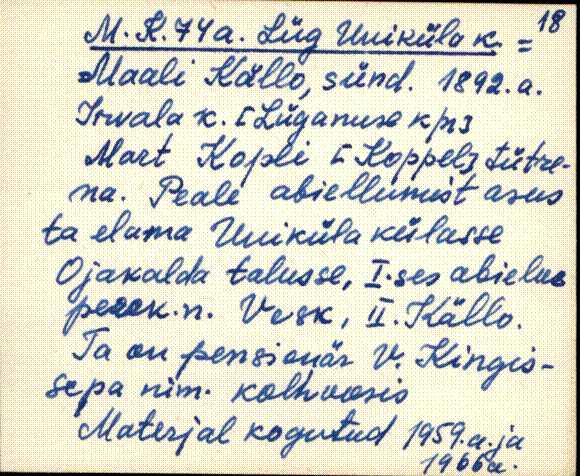 18
M. K. 74 a. Lüg Uniküla k. =
=Maali Källo, sünd. 1892. a.
Irvala k. [Lüganuse kp]
Mart Kopli [Koppel] tütre-
na. Peale abiellumist asus
ta elama Uniküla külasse
Ojakalda talusse, I-ses abielus
perek.n. Vesk, II. Källo.
Ta on pensionär V. Kingis-
sepa nim. kolhoosis
Materjal kogutud 1959. a. ja
1966 a.